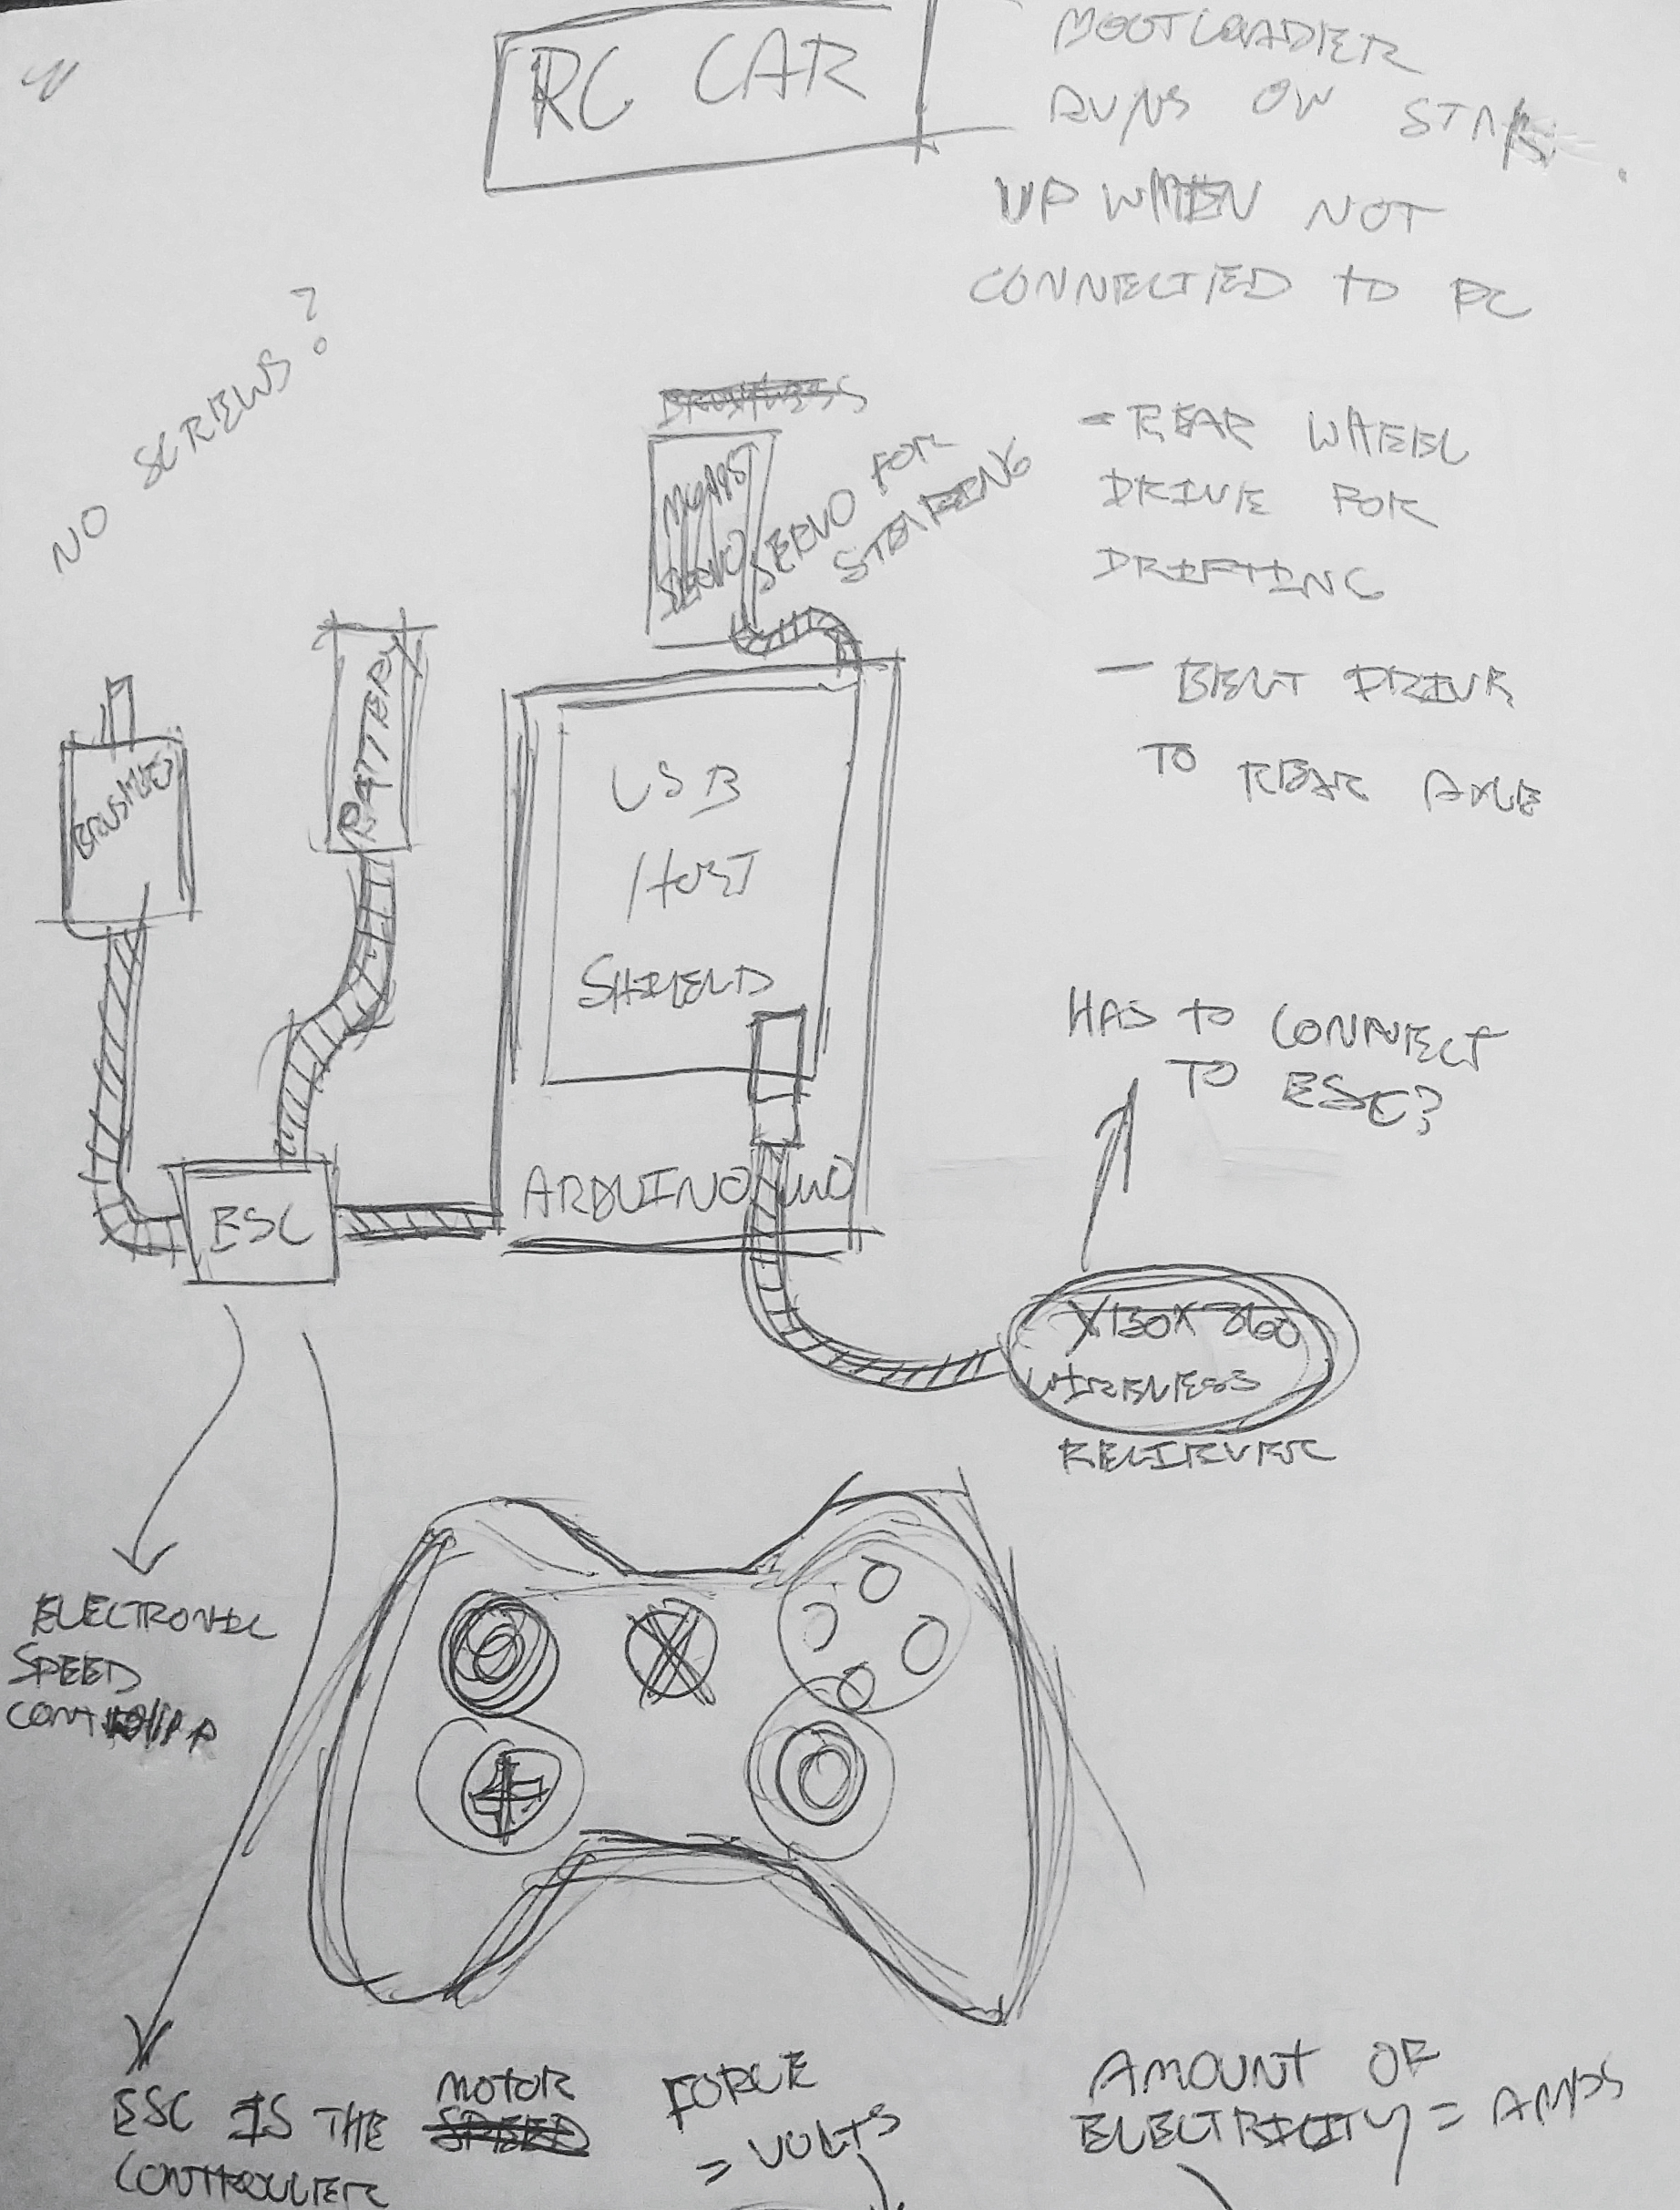 RC CAR
BOOTLOADER
RUNS ON START
UP WHEN NOT
CONNECTED TO PC
NO SCREWS?
SERVO
SERVO FOR
STEARING
- REAR WHEEL
DRIVE FOR
DRIFTING
- BELT DRIVE
TO REAR AXLE
BRUSHLESS
BATTERY
USB
HOST
SHIELD
ARDUINO UNO
ESC
HAS TO CONNECT
TO ESC?
XBOX 360
WIRELESS
RECIEVER
ELECTRONIC
SPEED
ESC IS THE MOTOR
CONTROLLER
FORCE
= VOLTS
AMOUNT OF
ELECTRICITY = AMPS